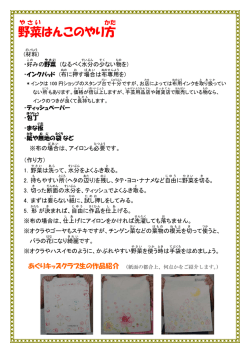 野菜はんこのやり方
(材料)
・好みの野菜 (なるべく水分の少ない物を)
・インクパッド (布に押す場合は布専用を)
＊インクは100円ショップのスタンプ台で十分ですが、お店によっては布用インクを取り扱ってい
ない所もあります。価格が倍以上しますが、手芸用品店や雑貨店で販売している物なら、
インクのつきが良くて長持ちします。
・ティッシュペーパー
・包丁
・まな板
・紙や無地の袋 など
※布の場合は、アイロンも必要。
(作り方)
1. 野菜は洗って、水分をよくふき取る。
2. 持ちやすい所(ヘタの辺り)を残し、タテ・ヨコ・ナナメなど自由に野菜を切る。
3. 切った断面の水分を、ティッシュでよくふき取る。
4. まずは要らない紙に、試し押しをしてみる。
5. 形が決まれば、自由に作品を仕上げる。
※布の場合は、仕上げにアイロンをかければ洗濯しても落ちません。
※オクラやゴーヤもステキですが、チンゲン菜などの葉物の根元を切って使うと、
バラの花になり綺麗です。
※オクラやハスイモのように、かぶれやすい野菜を使う時は手袋を着けましょう。
めぐりキッズクラブ生の作品紹介 (紙面の都合上、何点かをご紹介します。)